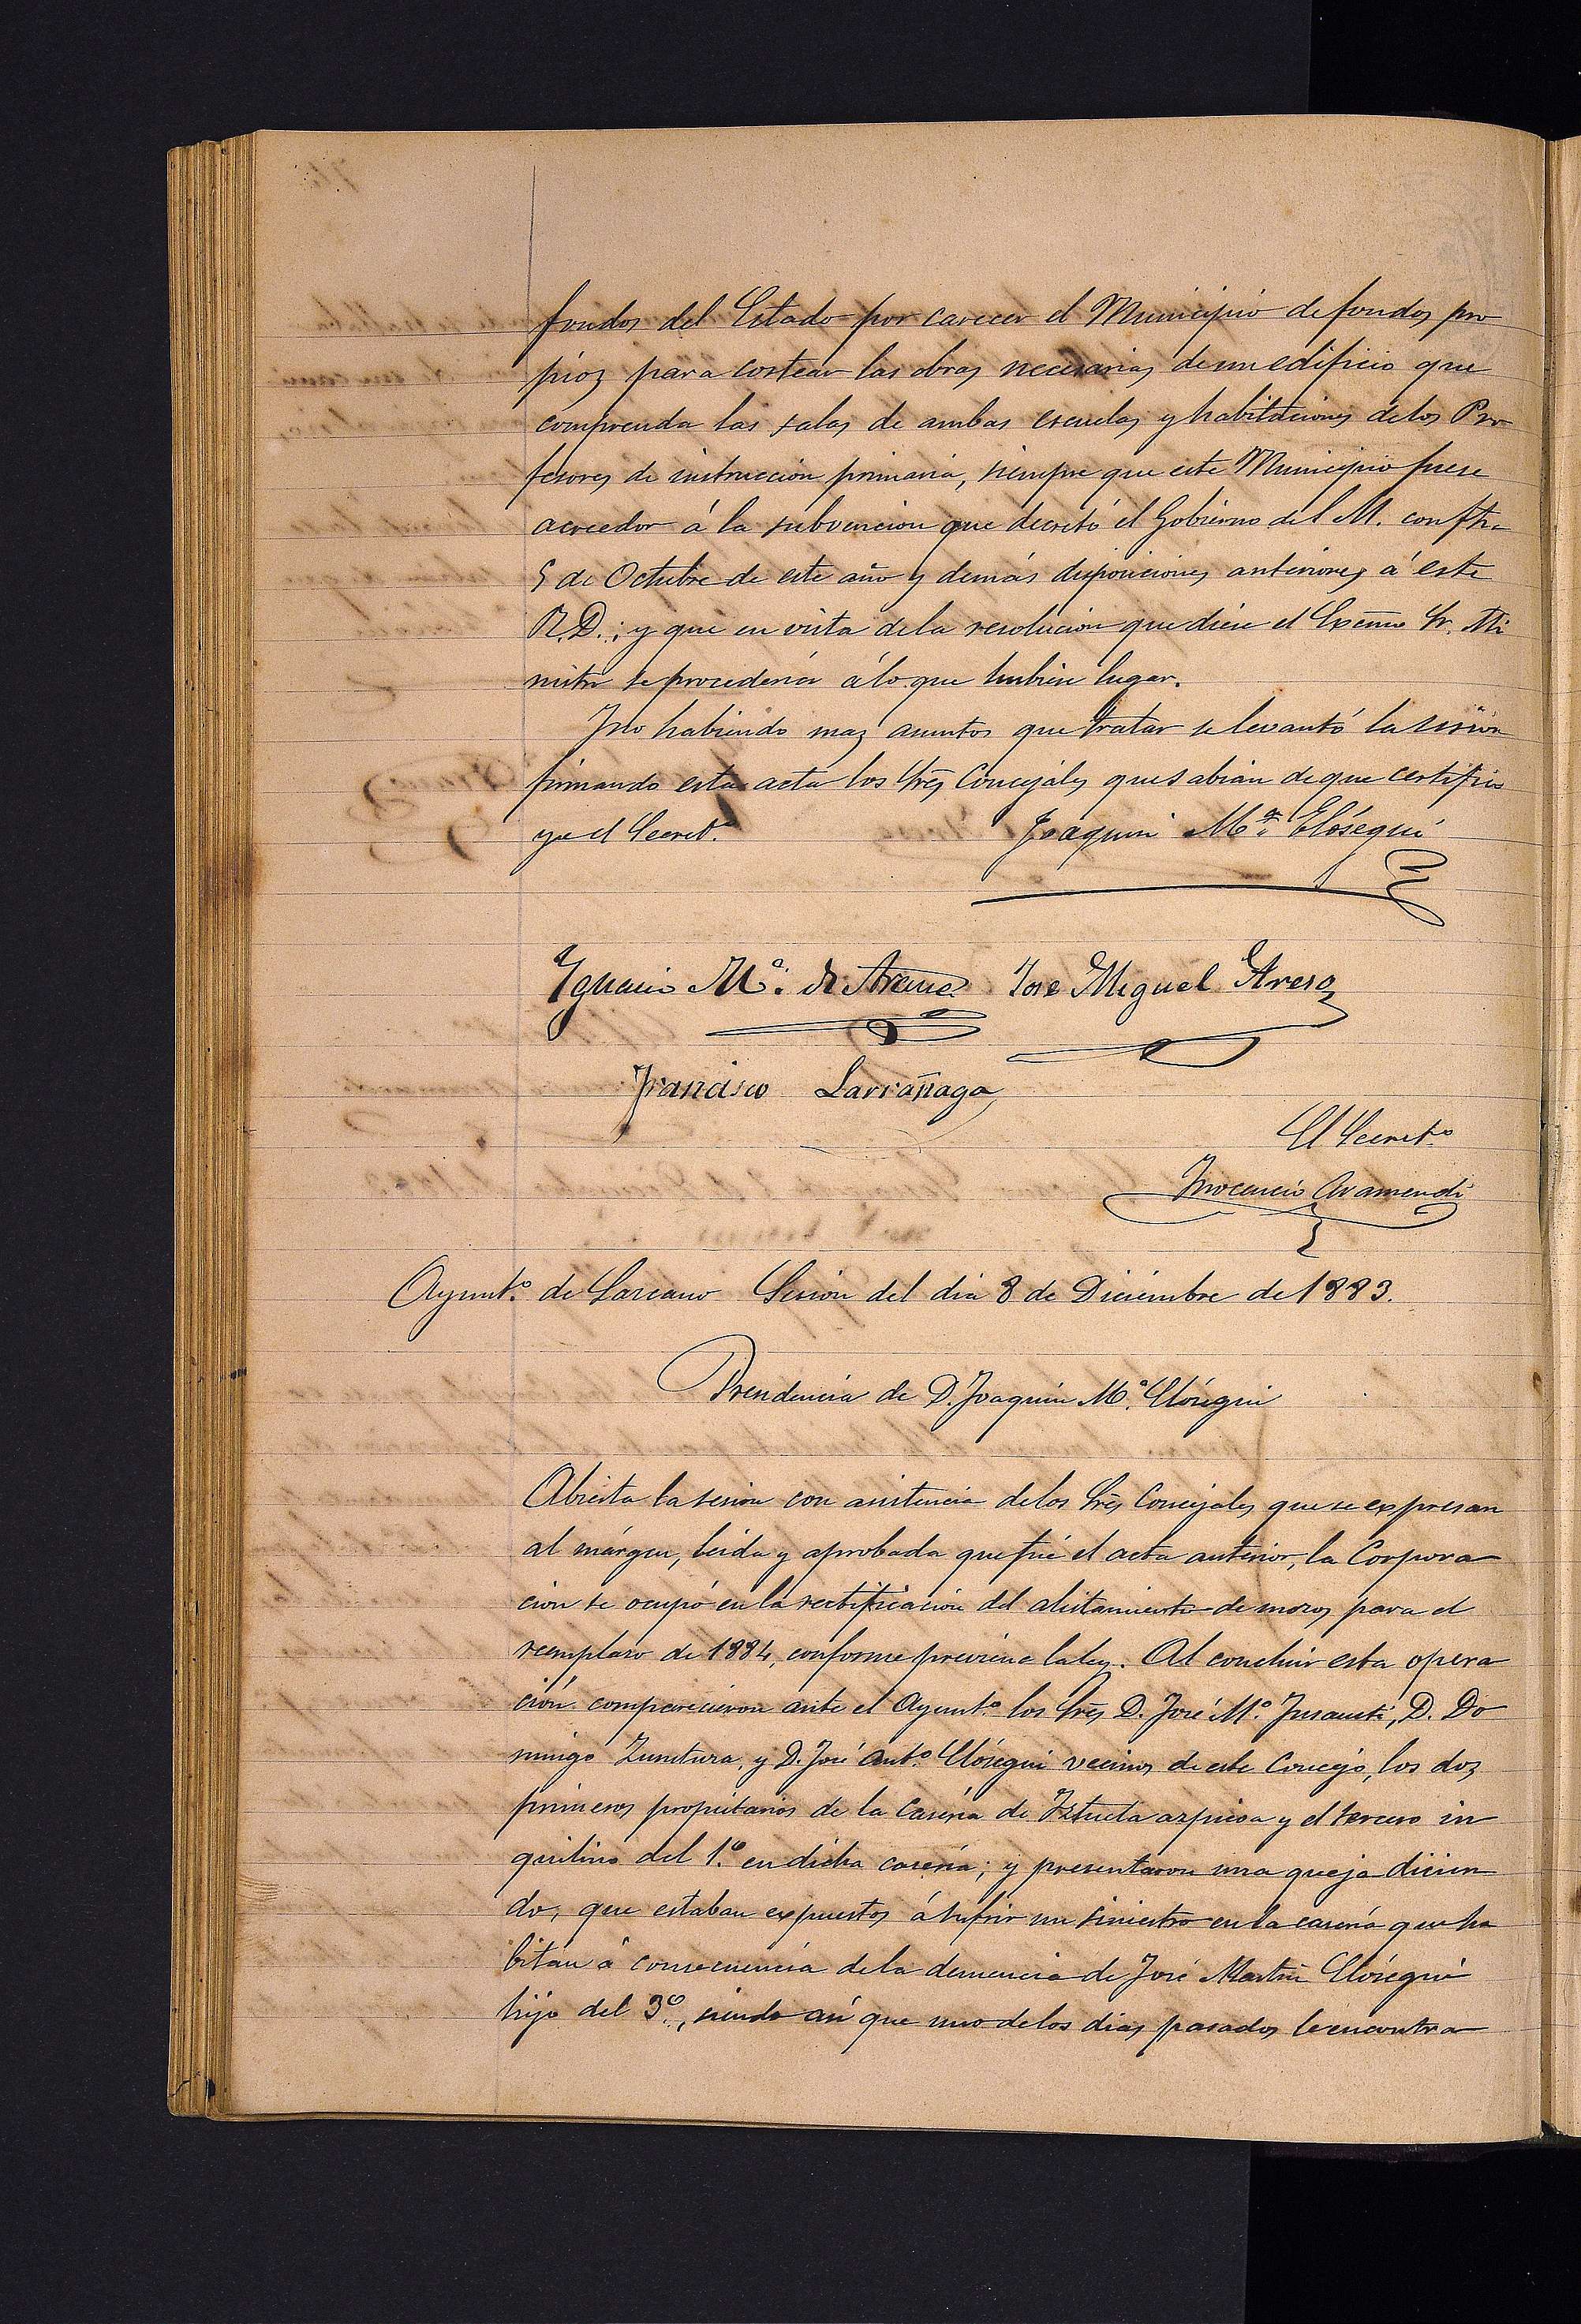 fondos del Estado por carecer el Municipio de fondos pro
pios para costear las obras necesarias de un edificio que
comprenda las salas de ambas escuelas y habitaciones de los Pro
fesores de instruccion primaria, siempre que este Municipio fuese
acreedor á la subvencion que decretó el Gobierno del M. con fha
5 de Octubre de este año y demás disposiciones anteriores á este
R.D.; y que en vista de la resolucion que diese el Excmo Sr. Mi
nistro se procederia á lo que hubiese lugar.
Y no habiendo mas asuntos que tratar se levantó la sesion
firmando esta acta los Sres Concejales que sabian de que certifico
yo el Secret.º
Joaquin M.ª Elósegui
Ignacio M.ª de Arana José Miguel Areso
Francisco Larrañaga
El Secret.º
Inocencio Aramendi
Ayunt.º de Lazcano Sesion del dia 8 de Diciembre de 1883.
Presidencia de D. Joaquin M.ª Elósegui
Abierta la sesion con asistencia de los Sres Concejales que se expresan
al márgen, leida y aprobada que fué el acta anterior, la Corpora
cion se ocupó en la rectificacion del alistamiento de mozos para el
reemplazo de 1884, conforme previene la ley. Al concluir esta opera
ción comparecieron ante el Ayunt.º los Sres D. José M.ª Insausti, D. Do
mingo Zunzura, y D. José Ant.º Elósegui vecinos de este Concejo, los dos
primeros propietarios de la caseria de Iztueta azpicoa y el tercero in
quilino del 1.º en dicha caseria; y presentaron una queja dicien
do, que estaban expuestos á sufrir un siniestro en la caseria que ha
bitan á consecuencia de la demencia de José Martin Elósegui
hijo del 3.º, siendo asi que uno de los dias pasados le encontra